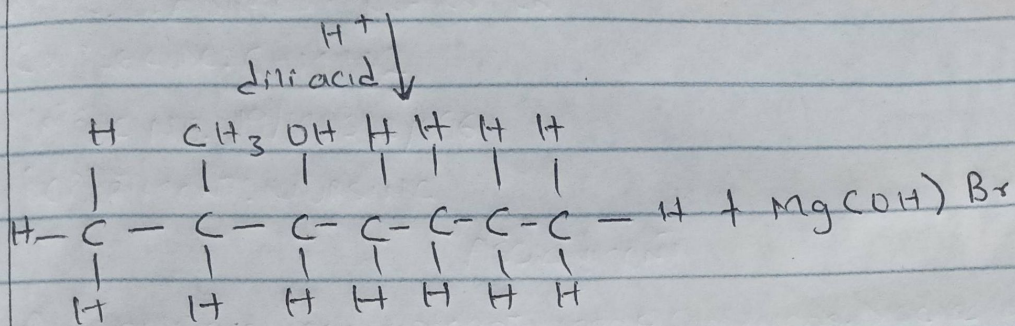 H+
dili acid
H CH3 OH H H H H
| | | | | | |
H- C - C - C- C- C- C- C - H + Mg(OH) Br
| | | | | | |
H H H H H H H